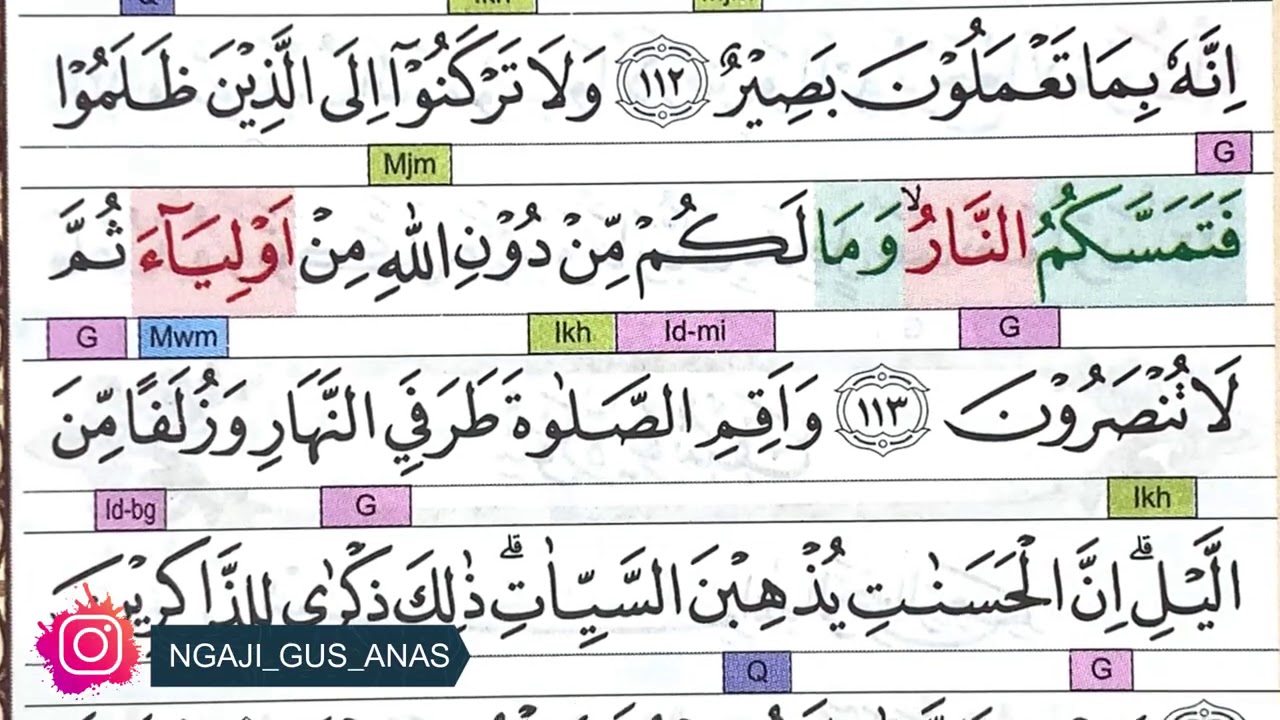 Q Ikh Mjm
اِنَّهٗ بِمَا تَعْمَلُوْنَ بَصِيْرٌ ۝١١٢ وَلَا تَرْكَنُوْٓا اِلَى الَّذِيْنَ ظَلَمُوْا
Mjm G
فَتَمَسَّكُمُ النَّارُۙ وَمَا لَكُمْ مِّنْ دُوْنِ اللّٰهِ مِنْ اَوْلِيَاۤءَ ثُمَّ
G Mwm Ikh Id-mi G
لَا تُنْصَرُوْنَ ۝١١٣ وَاَقِمِ الصَّلٰوةَ طَرَفَيِ النَّهَارِ وَزُلَفًا مِّنَ
Id-bg G Ikh
الَّيْلِۗ اِنَّ الْحَسَنٰتِ يُذْهِبْنَ السَّيِّاٰتِۗ ذٰلِكَ ذِكْرٰى لِلذَّاكِرِيْنَ
NGAJI_GUS_ANAS
Q G